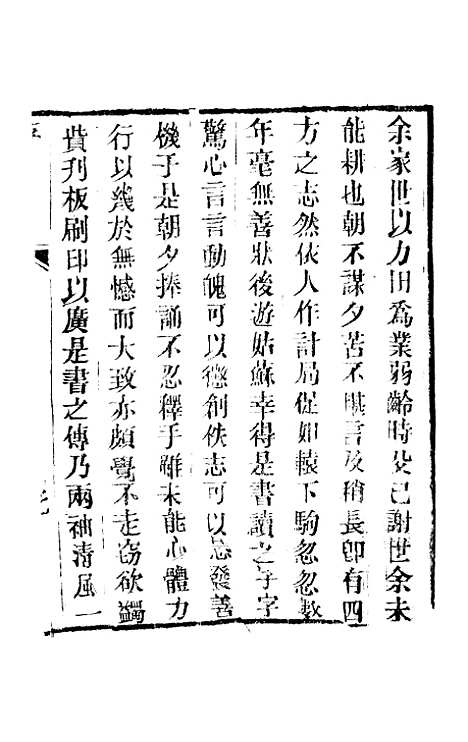 余家世以力田爲業弱齡時父已謝世余未
能耕也朝不謀夕苦不堪言及稍長卽有四
方之志然依人作計局促如轅下駒忽忽數
年毫無善狀後遊姑蘇幸得是書讀之字字
驚心言言動魄可以懲創佚志可以感發善
機于是朝夕捧誦不忍釋手雖未能心體力
行以幾於無憾而大致亦頗覺不走窃欲蠲
貲刋板刷印以廣是書之傳乃兩袖清風一
序